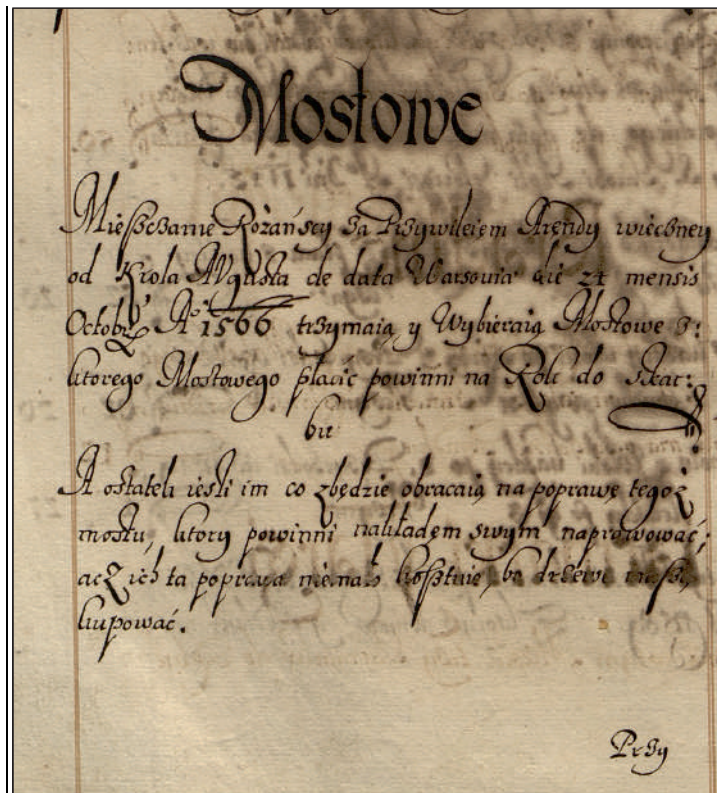 Mostowe
Mieszczanie Rożańscy za Przywileiem Arendy wieczney
od Krola Augusta de data Warsovia die 24 mensis
Octobr. Aº 1566 trzymaią y Wybieraią Mostowe z:
ktorego Mostowego płacic powinni na Rok do skar:
bu
A ostatek iesli im co zbędzie obracaią na poprawę tegoż
mostu, ktory powinni nakładem swym naprawować,
acz ich ta poprawa niemało kosztuie, bo drzewo muszą
kupować.
Przy